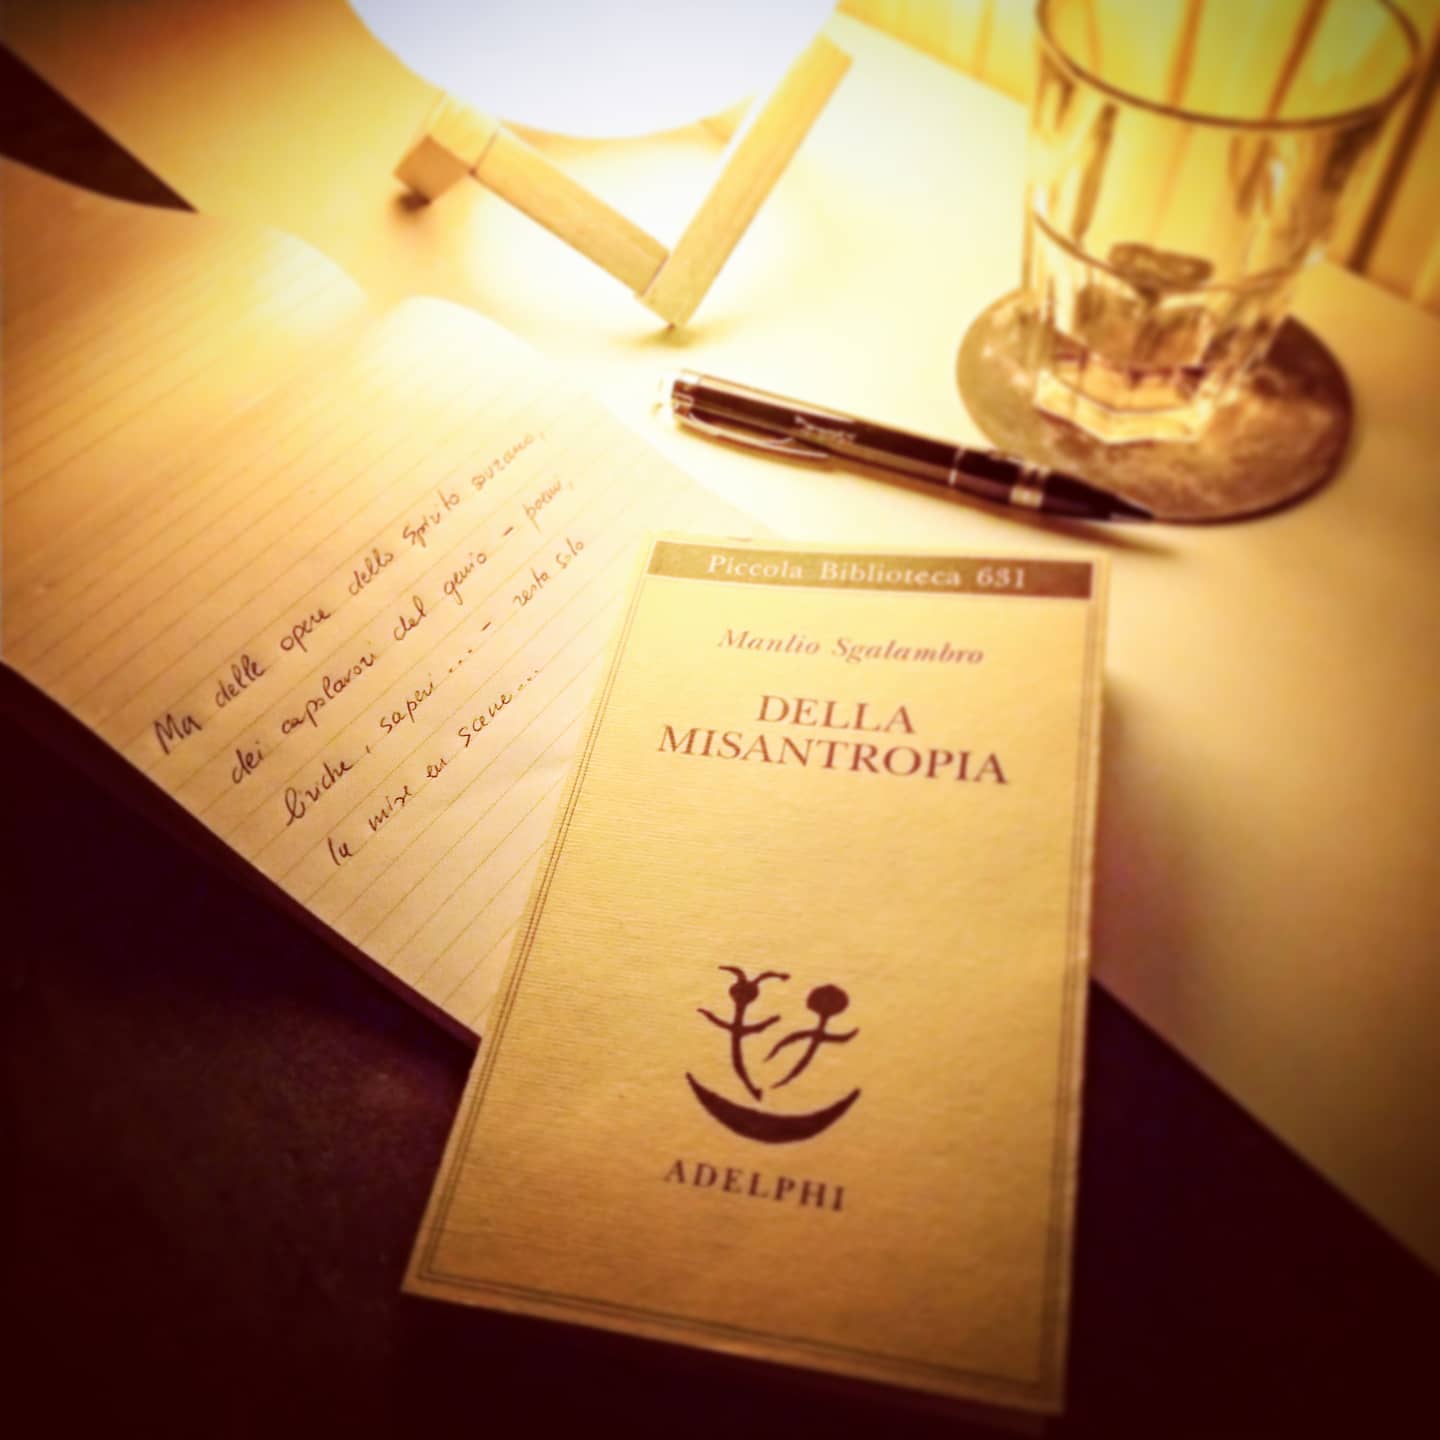 Ma delle opere dello spirito sovrano,
dei capolavori del genio - poemi,
liriche, saperi... - resta solo
la mise en scene...
Piccola Biblioteca 631
Manlio Sgalambro
DELLA
MISANTROPIA
ADELPHI